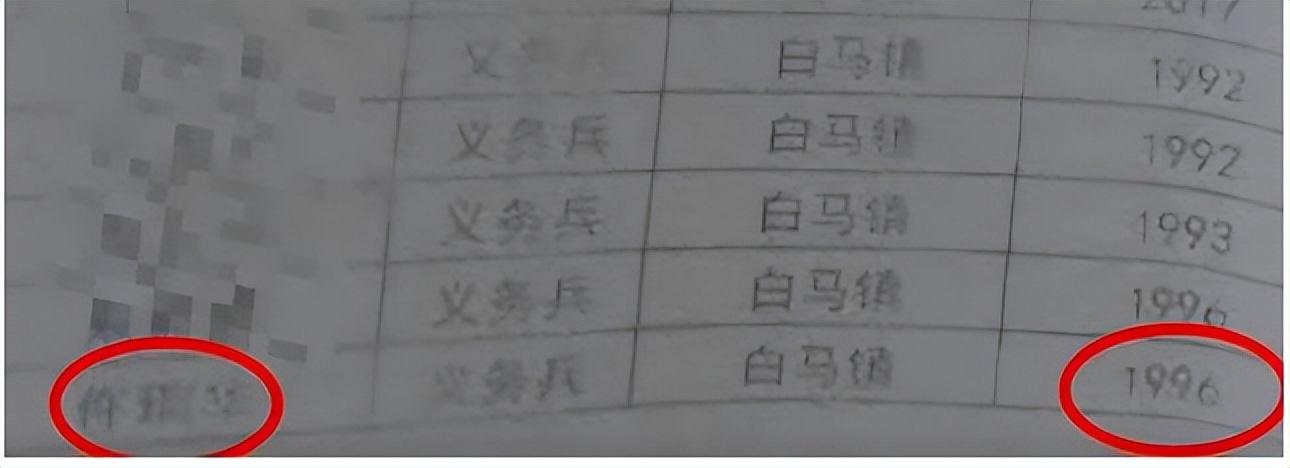 2017
义 白马镇 1992
义务兵 白马镇 1992
义务兵 白马镇 1993
义务兵 白马镇 1996
义务兵 白马镇 1996